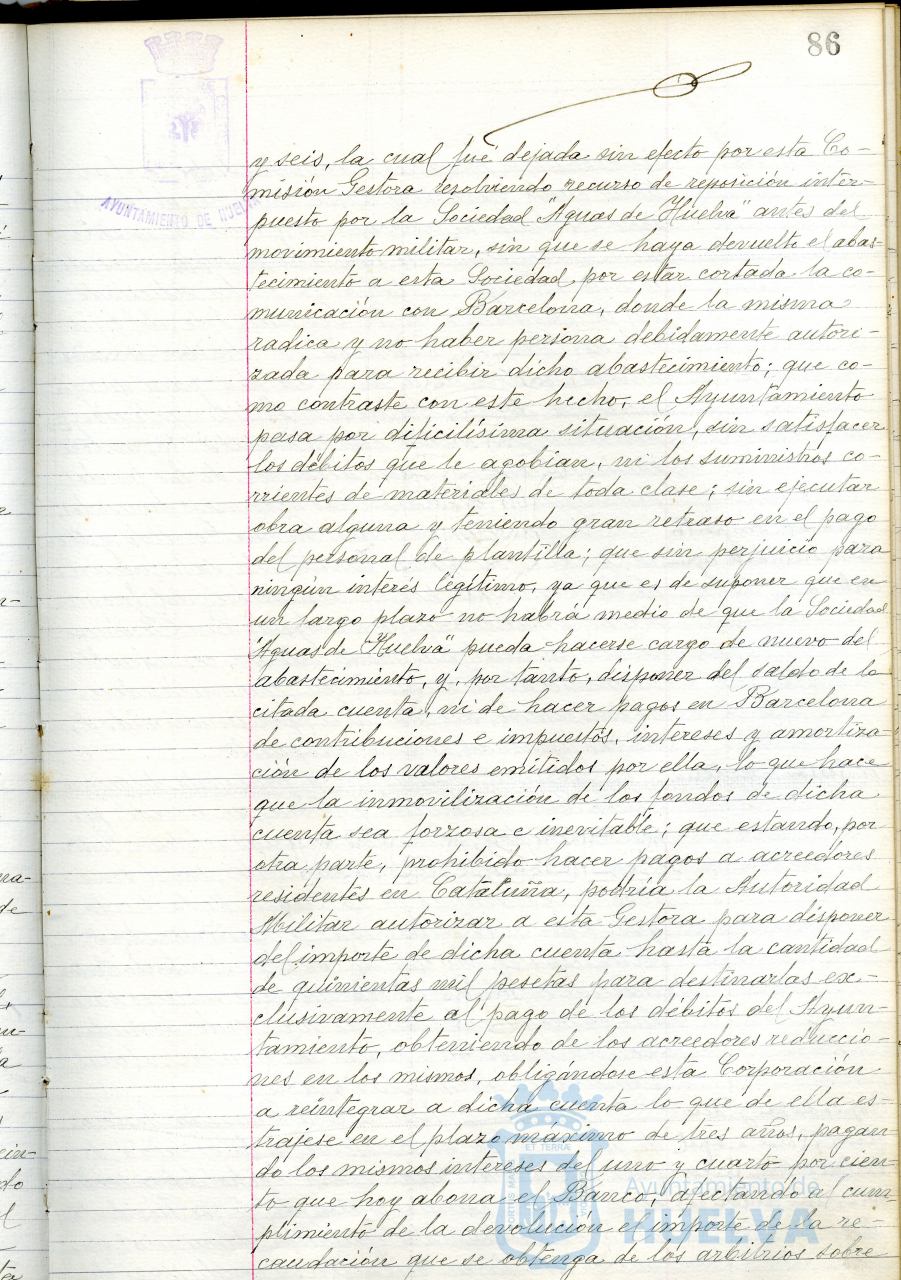 86
AYUNTAMIENTO DE HUELVA
y seis, la cual fué dejada sin efecto por esta Co-
misión Gestora resolviendo recurso de reposición inter-
puesto por la Sociedad "Aguas de Huelva" antes del
movimiento militar, sin que se haya devuelto el abas-
tecimiento a esta Sociedad, por estar cortada la co-
municación con Barcelona, donde la misma
radica y no haber persona debidamente autori-
zada para recibir dicho abastecimiento; que co-
mo contraste con este hecho, el Ayuntamiento
pasa por dificilísima situación, sin satisfacer
los débitos que le agobian, ni los suministros co-
rrientes de materiales de toda clase; sin ejecutar
obra alguna y teniendo gran retraso en el pago
del personal de plantilla; que sin perjuicio para
ningún interés legítimo, ya que es de suponer que en
un largo plazo no habrá medio de que la Sociedad
"Aguas de Huelva" pueda hacerse cargo de nuevo del
abastecimiento, y, por tanto, disponer del saldo de la
citada cuenta, ni de hacer pagos en Barcelona
de contribuciones e impuestos, intereses y amortiza-
ción de los valores emitidos por ella, lo que hace
que la inmovilización de los fondos de dicha
cuenta sea forzosa e inevitable; que estando, por
otra parte, prohibido hacer pagos a acreedores
residentes en Cataluña, podría la Autoridad
Militar autorizar a esta Gestora para disponer
del importe de dicha cuenta hasta la cantidad
de quinientas mil pesetas para destinarlas ex-
clusivamente al pago de los débitos del Ayun-
tamiento, obteniendo de los acreedores reduccio-
nes en los mismos, obligándose esta Corporación
a reintegrar a dicha cuenta lo que de ella es-
trajese en el plazo máximo de tres años, pagan-
do los mismos intereses del uno y cuarto por cien-
to que hoy abona el Banco, afectando al cum
plimiento de la devolución el importe de la re-
caudación que se obtenga de los arbitrios sobre
Ayuntamiento de
HUELVA